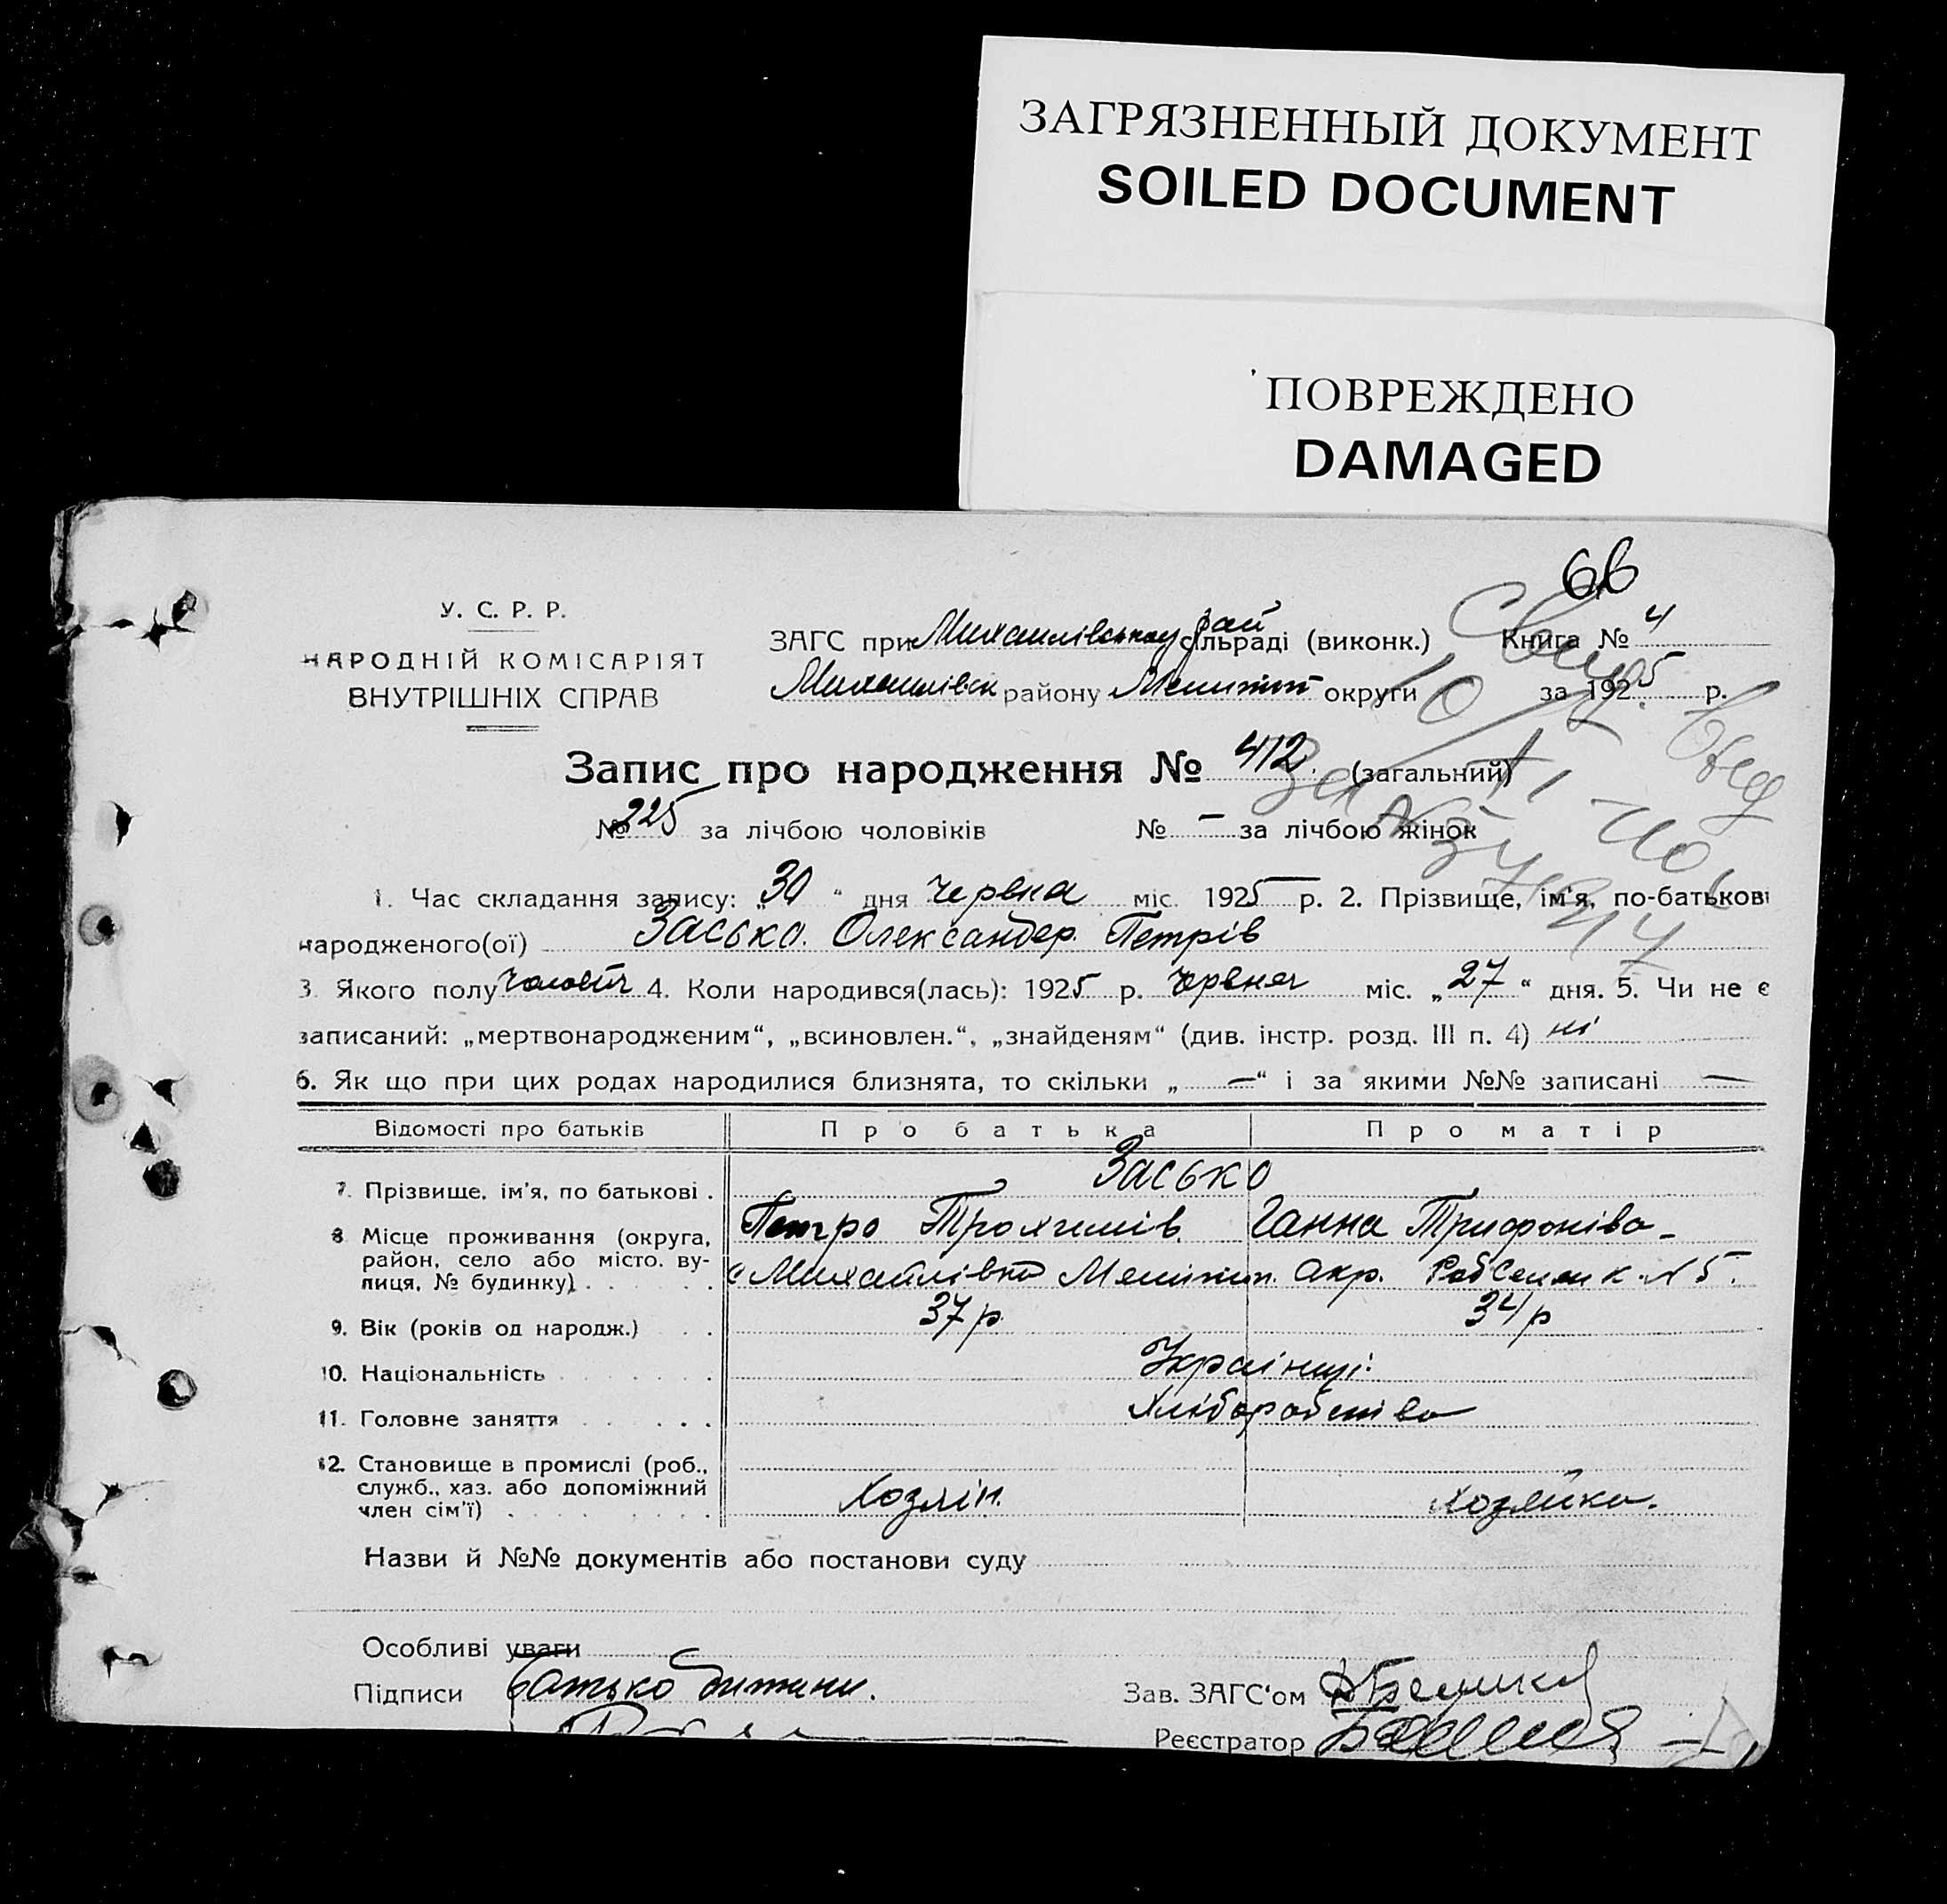 ЗАГРЯЗНЕННЫЙ ДОКУМЕНТ
SOILED DOCUMENT
ПОВРЕЖДЕНО
DAMAGED
66
У. С. Р. Р.
НАРОДНІЙ КОМІСАРІЯТ
ВНУТРІШНІХ СПРАВ
ЗАГС при Михайлівському рай сільраді (виконк.) Книга № 4
Михайлівск району Меліт округи за 1925 р.
Запис про народження № 412 (загальний)
№ 225 за лічбою чоловіків № — за лічбою жінок
1. Час складання запису: „30“ дня червня міс. 1925 р. 2. Прізвище, ім'я, по-батькові
народженого(ої) Засько. Олександер. Петрів
3. Якого полу 4. Коли народився(лась): 1925 р. червня міс. „27“ дня. 5. Чи не є
записаний: „мертвонародженим“, „всиновлен.“, „знайденям“ (див. інстр. розд. III п. 4) ні
6. Як що при цих родах народилися близнята, то скільки „—“ і за якими №№ записані —
Відомості про батьків Про батька Про матір
7. Прізвище, ім'я, по батькові . Засько
Петро Трохимів. Ганна Трифоніва
8. Місце проживання (округа,
район, село або місто, ву-
лиця, № будинку) с Михайлівка Меліт. окр. № 5.
9. Вік (років од народж.) 37 р 34 р
10. Національність Українці
11. Головне заняття Хліборобство
12. Становище в промислі (роб.,
служб., хаз. або допоміжний
член сім'ї) Хозяін. Хозяйка.
Назви й №№ документів або постанови суду
Особливі уваги
Підписи батько дитини. Зав. ЗАГС'ом
Реєстратор